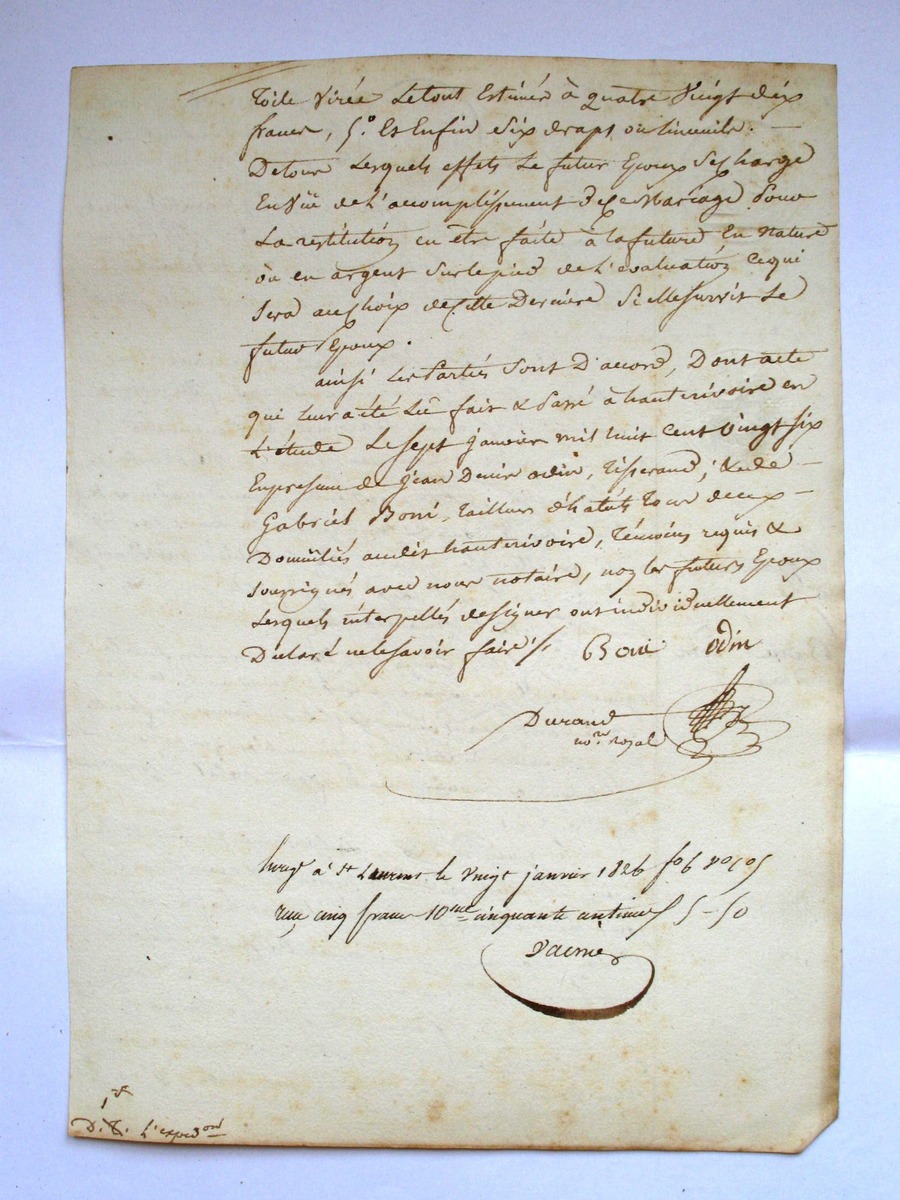 toile virée Le tout Estimés à quatre Vingt dix
francs, 5.° Et Enfin Six draps ou linceuils. —
De tous Lesquels effets Le futur Epoux Se charge
En Vüe de L'accomplissement de ce Mariage Pour
La restitution en être faite à la future En Nature
ou en argent Sur le pied de L'évaluation Ce qui
Sera au choix de Cette Derniere Si elle survit Le
futur Epoux.
ainsi Les Parties Sont D'accord, Dont acte
qui leur a été Lû fait & Passé à hauterivoire en
L'étude Le Sept Janvier mil huit Cent Vingt Six
En presence de Jean Denis odin, tisserand, & de —
Gabriel Boni, tailleur d'habits Tous deux —
Domiciliés audit hauterivoire, témoins requis &
Soussignés avec nous notaire, non les futurs Epoux
Lesquels interpellés de signer ont individuellement
Déclaré ne le savoir faire /.  Boni  Odin
Durand
no.re royal
à St Laurent le vingt janvier 1826 f° 6 v°
reçu cinq francs 10me cinquante centimes 5-50
1re
D. &. L'exped.on